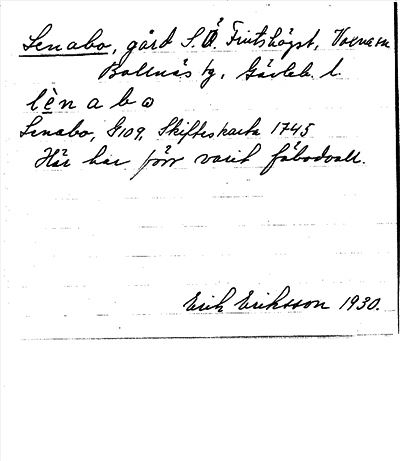 Lenabo, gård S.Ö. Fintshögst, Voxna sn
Bollnäs tg, Gävleb. l.
lènabo
Lenabo, G109, Skifteskarta 1745
Här har förr varit fäbodvall.
Erik Eriksson 1930.